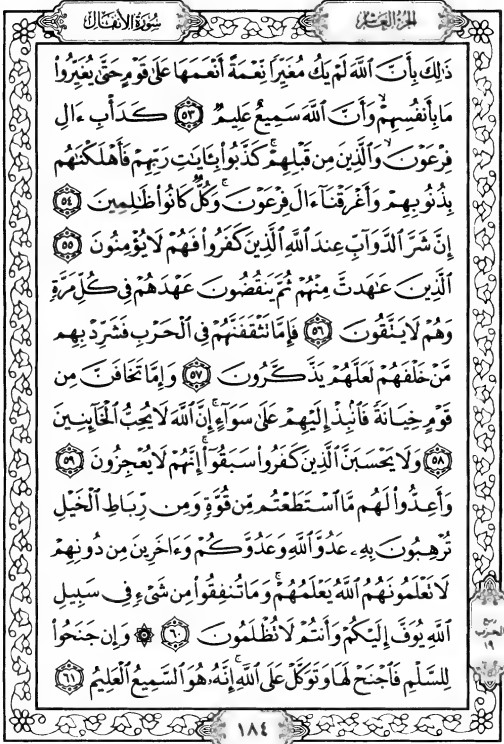 الجزء العاشر
سورة الأنفال
ذَٰلِكَ بِأَنَّ ٱللَّهَ لَمْ يَكُ مُغَيِّرًا نِّعْمَةً أَنْعَمَهَا عَلَىٰ قَوْمٍ حَتَّىٰ يُغَيِّرُوا۟
مَا بِأَنفُسِهِمْ ۙ وَأَنَّ ٱللَّهَ سَمِيعٌ عَلِيمٌ ٥٣ كَدَأْبِ ءَالِ
فِرْعَوْنَ ۙ وَٱلَّذِينَ مِن قَبْلِهِمْ ۚ كَذَّبُوا۟ بِـَٔايَـٰتِ رَبِّهِمْ فَأَهْلَكْنَـٰهُم
بِذُنُوبِهِمْ وَأَغْرَقْنَآ ءَالَ فِرْعَوْنَ ۚ وَكُلٌّ كَانُوا۟ ظَـٰلِمِينَ ٥٤
إِنَّ شَرَّ ٱلدَّوَآبِّ عِندَ ٱللَّهِ ٱلَّذِينَ كَفَرُوا۟ فَهُمْ لَا يُؤْمِنُونَ ٥٥
ٱلَّذِينَ عَـٰهَدتَّ مِنْهُمْ ثُمَّ يَنقُضُونَ عَهْدَهُمْ فِى كُلِّ مَرَّةٍ
وَهُمْ لَا يَتَّقُونَ ٥٦ فَإِمَّا تَثْقَفَنَّهُمْ فِى ٱلْحَرْبِ فَشَرِّدْ بِهِم
مَّنْ خَلْفَهُمْ لَعَلَّهُمْ يَذَّكَّرُونَ ٥٧ وَإِمَّا تَخَافَنَّ مِن
قَوْمٍ خِيَانَةً فَٱنۢبِذْ إِلَيْهِمْ عَلَىٰ سَوَآءٍ ۚ إِنَّ ٱللَّهَ لَا يُحِبُّ ٱلْخَآئِنِينَ
٥٨ وَلَا يَحْسَبَنَّ ٱلَّذِينَ كَفَرُوا۟ سَبَقُوٓا۟ ۚ إِنَّهُمْ لَا يُعْجِزُونَ ٥٩
وَأَعِدُّوا۟ لَهُم مَّا ٱسْتَطَعْتُم مِّن قُوَّةٍ وَمِن رِّبَاطِ ٱلْخَيْلِ
تُرْهِبُونَ بِهِۦ عَدُوَّ ٱللَّهِ وَعَدُوَّكُمْ وَءَاخَرِينَ مِن دُونِهِمْ
لَا تَعْلَمُونَهُمُ ٱللَّهُ يَعْلَمُهُمْ ۚ وَمَا تُنفِقُوا۟ مِن شَىْءٍ فِى سَبِيلِ
ٱللَّهِ يُوَفَّ إِلَيْكُمْ وَأَنتُمْ لَا تُظْلَمُونَ ٦٠ ۞ وَإِن جَنَحُوا۟
لِلسَّلْمِ فَٱجْنَحْ لَهَا وَتَوَكَّلْ عَلَى ٱللَّهِ ۚ إِنَّهُۥ هُوَ ٱلسَّمِيعُ ٱلْعَلِيمُ ٦١
ربع
الحزب
١٩
١٨٤